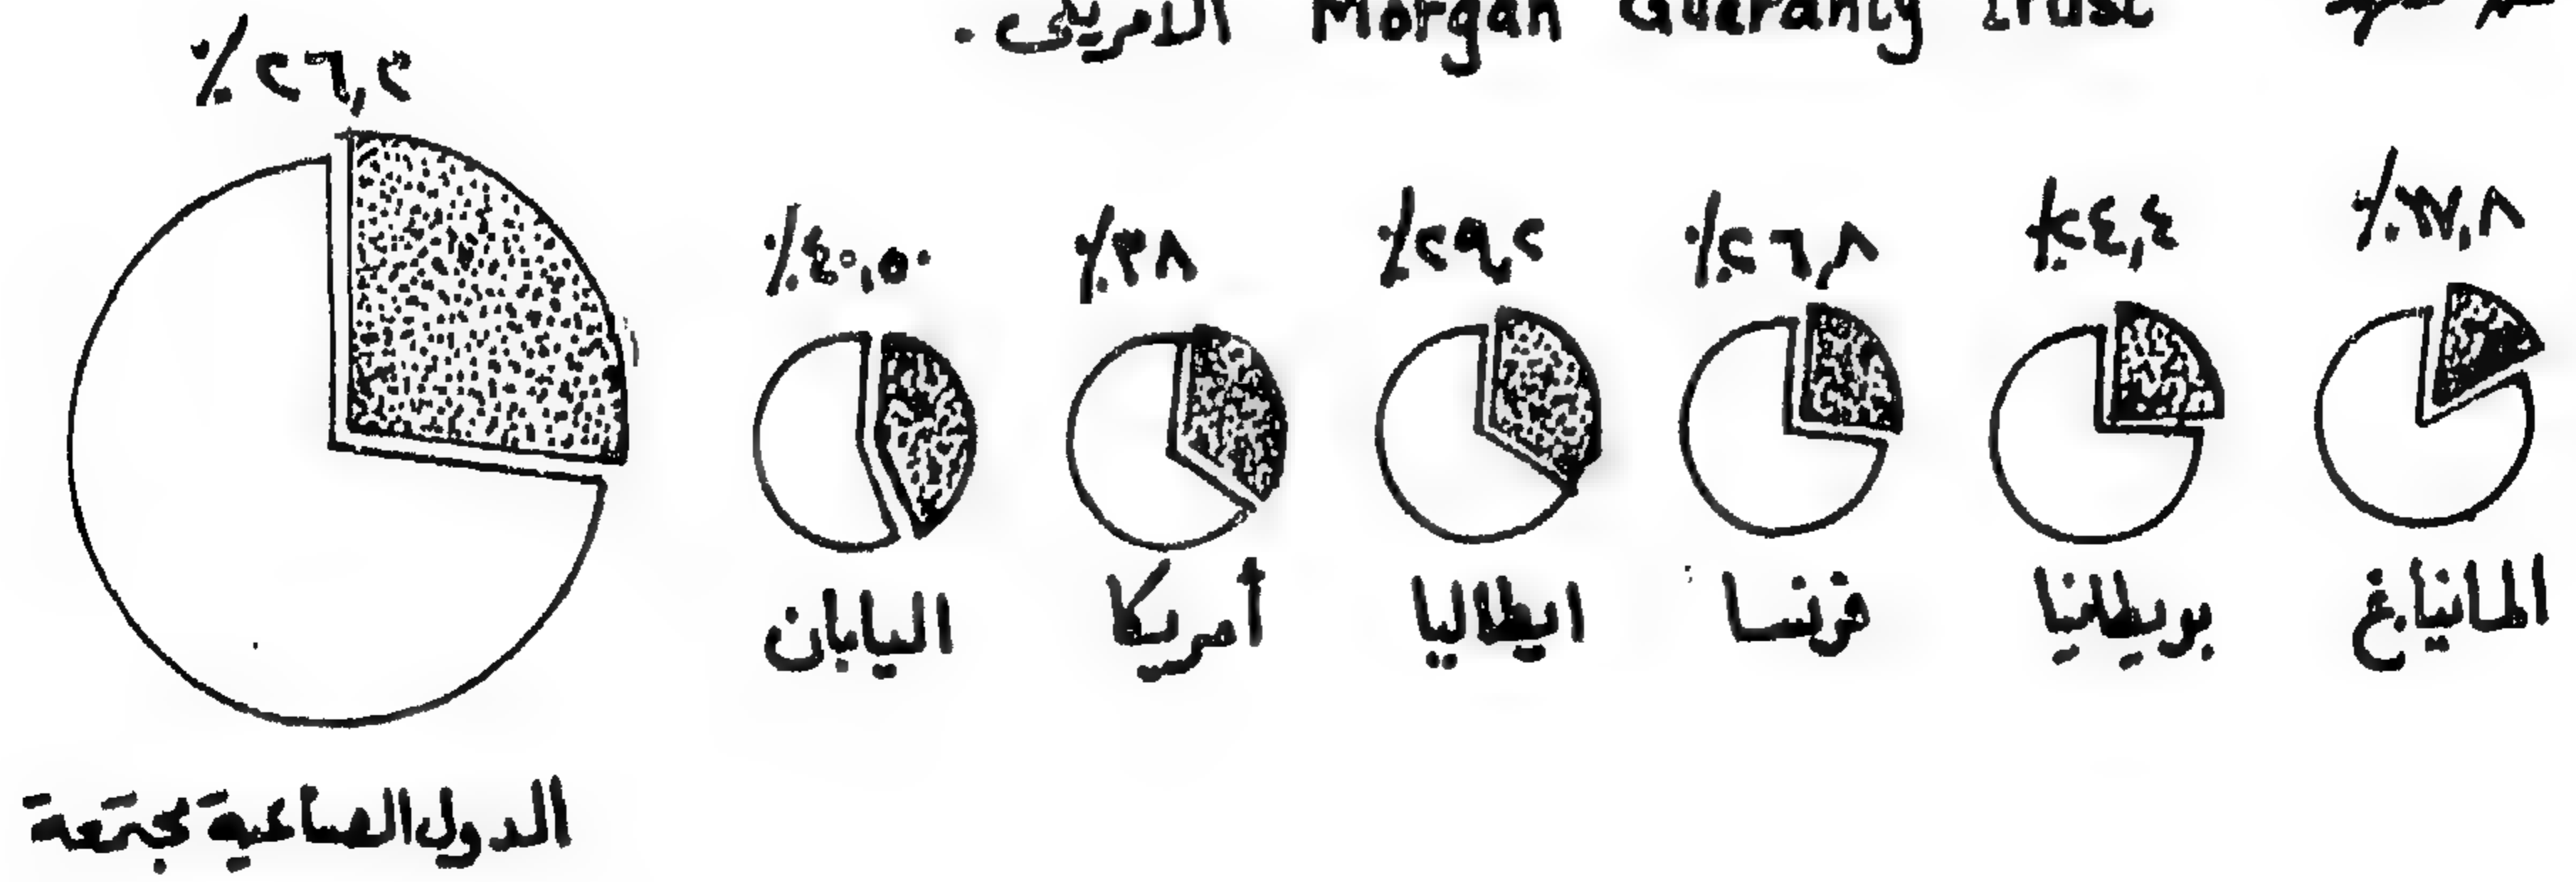 Morgan Guaranty Trust الامريكى .
٢٦,٢٪
١٧,٨٪ ٢٤,٤٪ ٢٦,٨٪ ٢٩,٢٪ ٣٨٪ ٤٠,٥٠٪
المانيا غ بريطانيا فرنسا ايطاليا أمريكا اليابان
الدول الصناعية مجتمعة